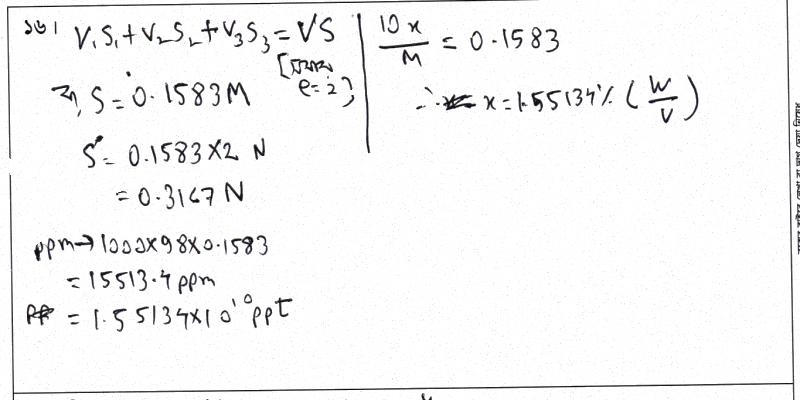 ১৬। V₁S₁+V₂S₂+V₃S₃=VS
বা, S = 0.1583M
e=2]
S = 0.1583×2 N
= 0.3167 N
ppm→1000×98×0.1583
= 15513.4 ppm
= 1.55134×10¹⁰ ppt
10x/M = 0.1583
∴ x = 1.55134% (W/V)